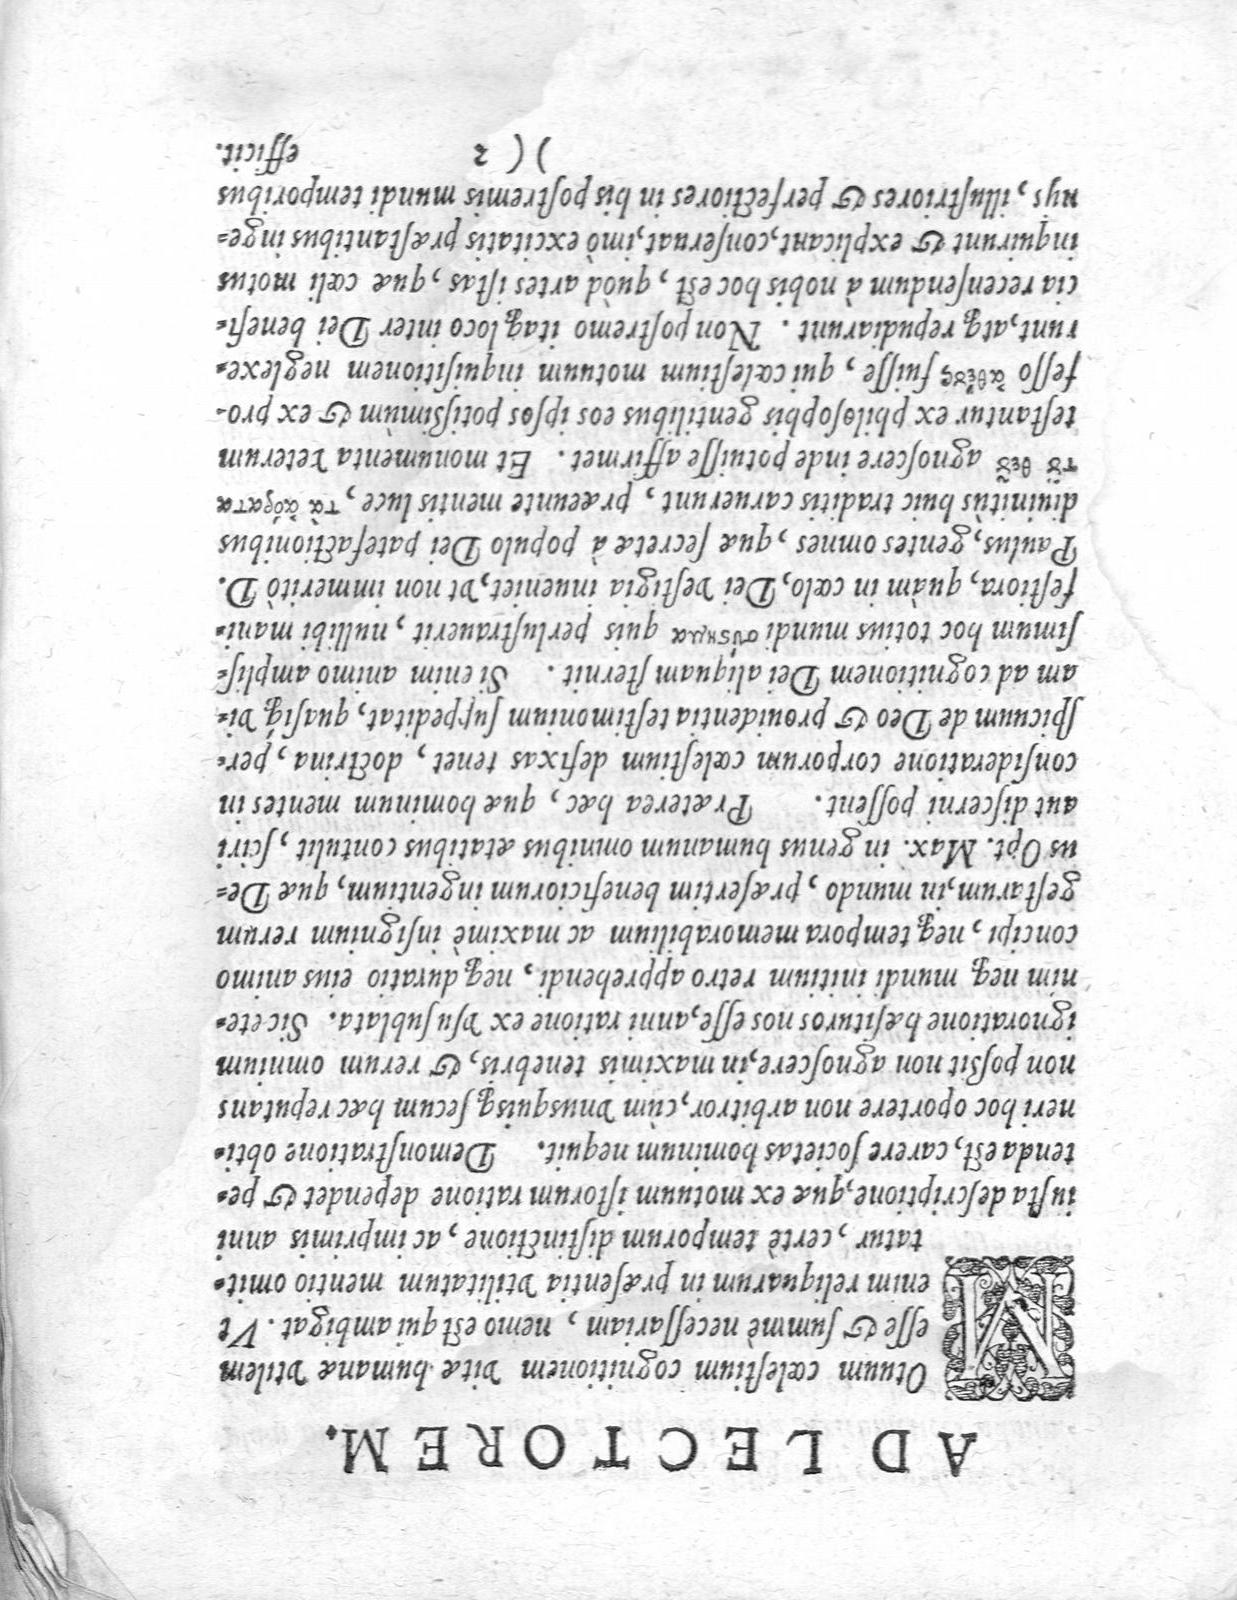 AD LECTOREM.
MOtuum cœleſtium cognitionem vitæ humanæ vtilem
eſſe & ſummè neceſſariam, nemo eſt qui ambigat. Vt
enim reliquarum in præſentia vtilitatum mentio omit-
tatur, certè temporum diſtinctione, ac imprimis anni
iuſta deſcriptione, quæ ex motuum iſtorum ratione dependet & pe-
tenda eſt, carere ſocietas hominum nequit. Demonſtratione obti-
neri hoc oportere non arbitror, cùm vnusquisq; ſecum hæc reputans
non poßit non agnoſcere, in maximis tenebris, & rerum omnium
ignoratione hæſituros nos eſſe, anni ratione ex vſu ſublata. Sic ete-
nim neq; mundi initium retro apprehendi, neq; duratio eius animo
concipi, neq; tempora memorabilium ac maximè inſignium rerum
geſtarum, in mundo, præſertim beneficiorum ingentium, quæ De-
us Opt. Max. in genus humanum omnibus ætatibus contulit, ſciri
aut diſcerni poſſent. Præterea hæc, quæ hominum mentes in
conſideratione corporum cœleſtium defixas tenet, doctrina, per-
ſpicuum de Deo & prouidentia teſtimonium ſuppeditat, quaſiq́; vi-
am ad cognitionem Dei aliquam ſternit. Si enim animo ampliſ-
ſimum hoc totius mundi σύςημα quis perluſtrauerit, nullibi mani-
feſtiora, quàm in cœlo, Dei veſtigia inueniet, vt non immeritò D.
Paulus, gentes omnes, quæ ſecretæ à populo Dei patefactionibus
diuinitùs huic traditis caruerunt, præeunte mentis luce, τὰ ἀόρατα
τοῦ θεοῦ agnoſcere inde potuiſſe affirmet. Et monumenta veterum
teſtantur ex philoſophis gentilibus eos ipſos potißimùm & ex pro-
feſſo ἀθέους fuiſſe, qui cœleſtium motuum inquiſitionem neglexe-
runt, atq; repudiarunt. Non poſtremo itaq; loco inter Dei benefi-
cia recenſendum à nobis hoc eſt, quòd artes iſtas, quæ cœli motus
inquirunt & explicant, conſeruat, imò excitatis præſtantibus inge-
nijs, illuſtriores & perfectiores in his poſtremis mundi temporibus
)( 2 efficit.